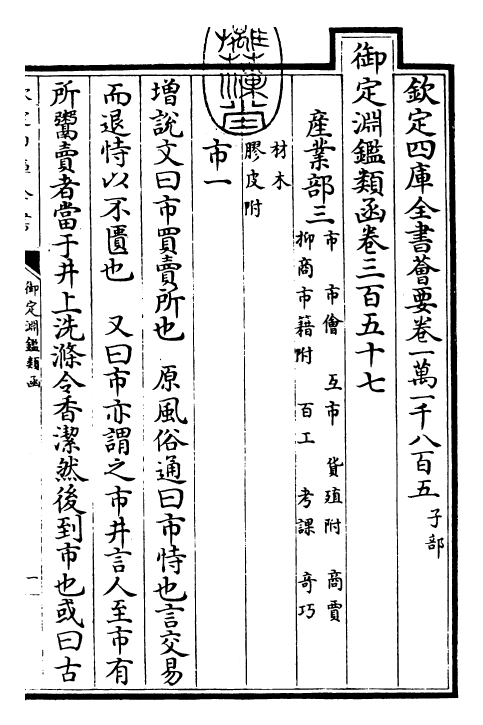 欽定四庫全書薈要卷一萬一千八百五 子部
御定淵鑑類函卷三百五十七
產業部三
市 市儈 互市 貨殖附 商賈
抑商市籍附 百工 考課 奇巧
材木
膠皮附
市一
增說文曰市買賣所也 原風俗通曰市恃也言交易
而退恃以不匱也 又曰市亦謂之市井言人至市有
所鬻賣者當于井上洗滌令香潔然後到市也或曰古
御定淵鑑類函
一